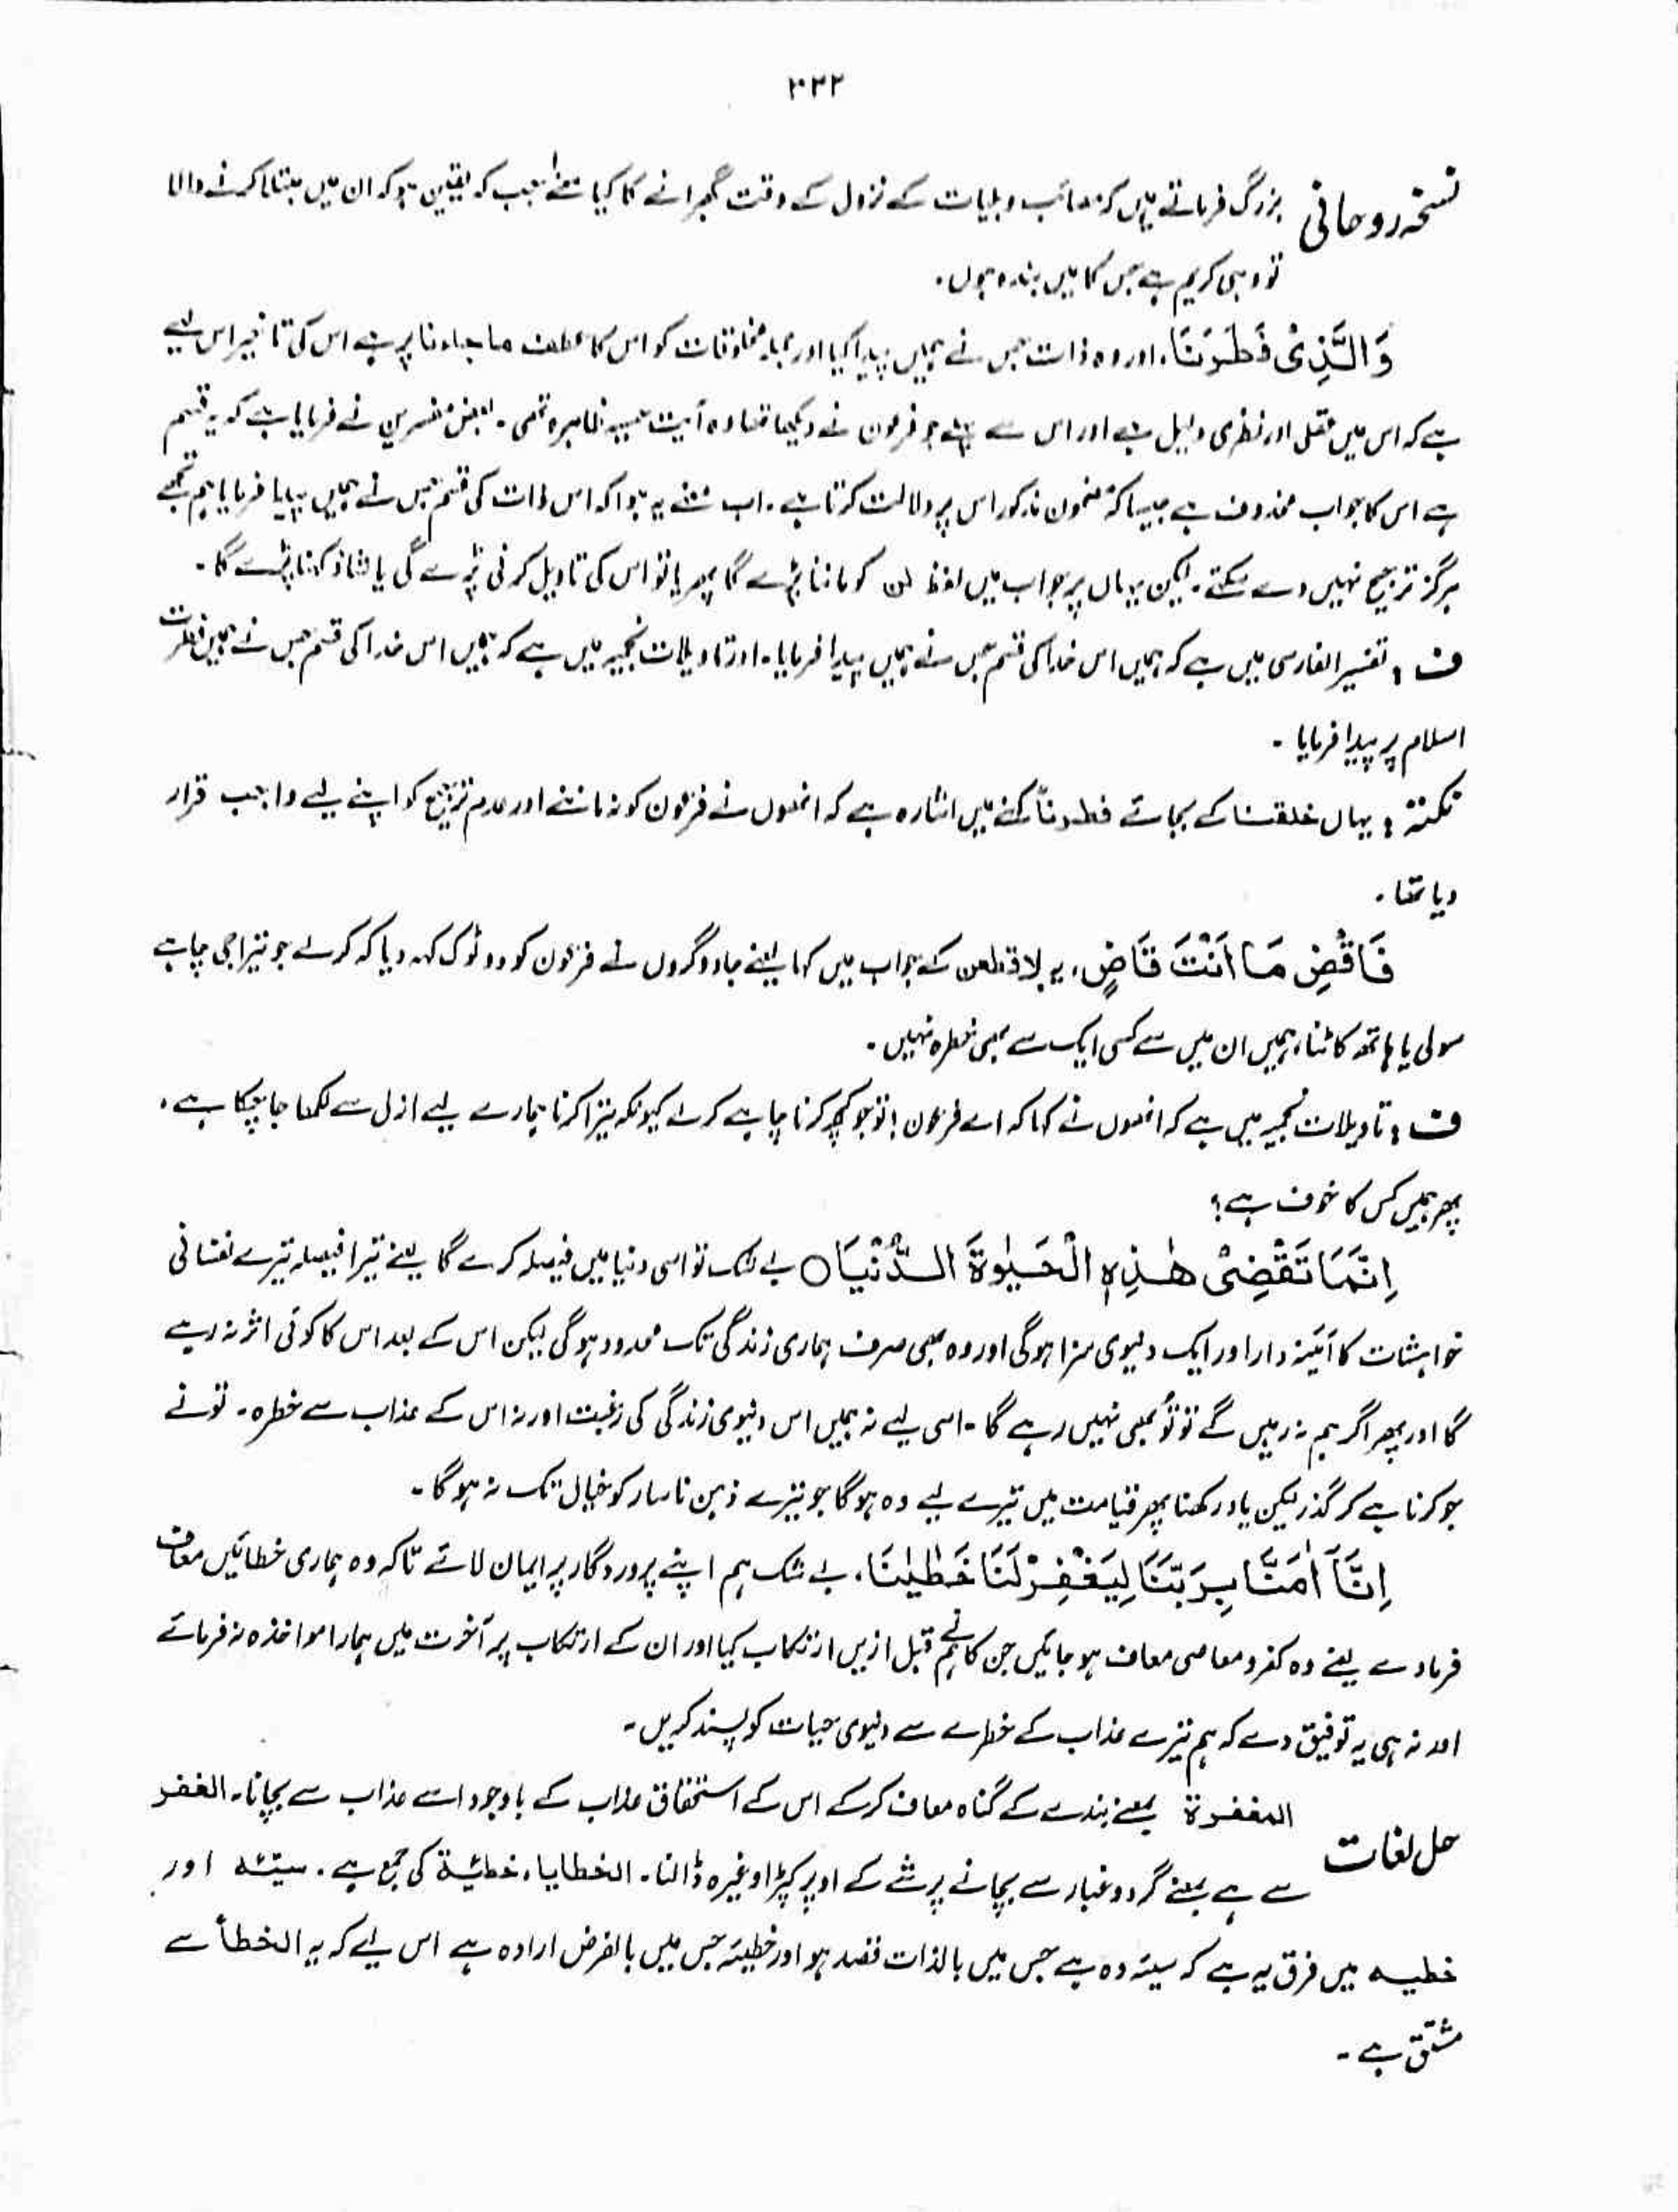 ۳۲۲
نسخہ روحانی بزرگ فرماتے ہیں کہ مصائب و بلیات کے نزول کے وقت گھبرانے کا کیا معنے جب کہ یقین ہو کہ ان میں مبتلا کرنے والا
تو وہی کریم ہے جس کا میں بندہ ہوں۔
وَالَّذِیْ فَطَرَنَا، اور وہ ذات جس نے ہمیں پیدا کیا اور جملہ مخلوقات کو اس کا عطف ما جاءنا پر ہے اس کی تاخیر اس لیے
ہے کہ اس میں عقلی اور نظری دلیل ہے اور اس سے پہلے جو فرعون نے دیکھا تھا وہ آیت حسیہ ظاہرہ تھی۔ بعض مفسرین نے فرمایا ہے کہ یہ قسم
ہے اس کا جواب محذوف ہے جیسا کہ مضمون مذکور اس پر دلالت کرتا ہے۔ اب معنے یہ ہوا کہ اس ذات کی قسم جس نے ہمیں پیدا فرمایا ہم تجھے
ہرگز ترجیح نہیں دے سکتے۔ لیکن یہاں پر جواب میں لفظ لن کو ماننا پڑے گا پھر یا تو اس کی تاویل کرنی پڑے گی یا شاذ کہنا پڑے گا۔
ف : تفسیر الفارسی میں ہے کہ ہمیں اس خدا کی قسم جس نے ہمیں پیدا فرمایا۔ اور تاویلات نجمیہ میں ہے کہ ہمیں اس خدا کی قسم جس نے ہمیں فطرت
اسلام پر پیدا فرمایا ۔
نکتہ : یہاں خلقنا کے بجائے فطرنا کہنے میں اشارہ ہے کہ انھوں نے فرعون کو نہ ماننے اور عدم ترجیح کو اپنے لیے واجب قرار
دیا تھا ۔
فَاقْضِ مَا اَنْتَ قَاضٍ، یہ لاقطعن کے جواب میں کہا یعنے جادوگروں نے فرعون کو دو ٹوک کہہ دیا کہ کر لے جو تیرا جی چاہے
سولی یا ہاتھ کاٹنا، ہمیں ان میں سے کسی ایک سے بھی خطرہ نہیں۔
ف : تاویلات نجمیہ میں ہے کہ انھوں نے کہا کہ اے فرعون! تو جو کچھ کرنا چاہے کر لے کیونکہ تیرا کرنا ہمارے لیے ازل سے لکھا جا چکا ہے،
پھر ہمیں کس کا خوف ہے؟
اِنَّمَا تَقْضِیْ هٰذِهِ الْحَیٰوةَ الدُّنْیَا○ بے شک تو اسی دنیا میں فیصلہ کرے گا یعنے تیرا فیصلہ تیرے نفسانی
خواہشات کا آئینہ دار اور ایک دنیوی سزا ہوگی اور وہ بھی صرف ہماری زندگی تک محدود ہوگی لیکن اس کے بعد اس کا کوئی اثر نہ رہے
گا اور پھر اگر ہم نہ رہیں گے تو تُو بھی نہیں رہے گا ۔ اسی لیے نہ ہمیں اس دنیوی زندگی کی رغبت اور نہ اس کے عذاب سے خطرہ۔ تو نے
جو کرنا ہے کر گذر لیکن یاد رکھنا پھر قیامت میں تیرے لیے وہ ہوگا جو تیرے ذہن نارسا کو خیال تک نہ ہوگا۔
اِنَّاۤ اٰمَنَّا بِرَبِّنَا لِیَغْفِرْلَنَا خَطٰیٰنَا، بے شک ہم اپنے پروردگار پر ایمان لائے تاکہ وہ ہماری خطائیں معاف
فرمادے یعنے وہ کفر و معاصی معاف ہو جائیں جن کا ہم نے قبل ازیں ارتکاب کیا اور ان کے ارتکاب پر آخرت میں ہمارا مواخذہ نہ فرمائے
اور نہ ہی یہ توفیق دے کہ ہم تیرے عذاب کے خطرے سے دنیوی حیات کو پسند کریں۔
حل لغات المغفرة بمعنے بندے کے گناہ معاف کرکے اس کے استحقاق عذاب کے باوجود اسے عذاب سے بچانا۔ الغفر
سے ہے بمعنے گرد و غبار سے بچانے پر شے کے اوپر کپڑا وغیرہ ڈالنا۔ الخطایا، خطیئة کی جمع ہے ۔ سیئه اور
خطیه میں فرق یہ ہے کہ سیئہ وہ ہے جس میں بالذات قصد ہو اور خطیئہ جس میں بالغرض ارادہ ہے اس لیے کہ یہ الخطأ سے
مشتق ہے ۔